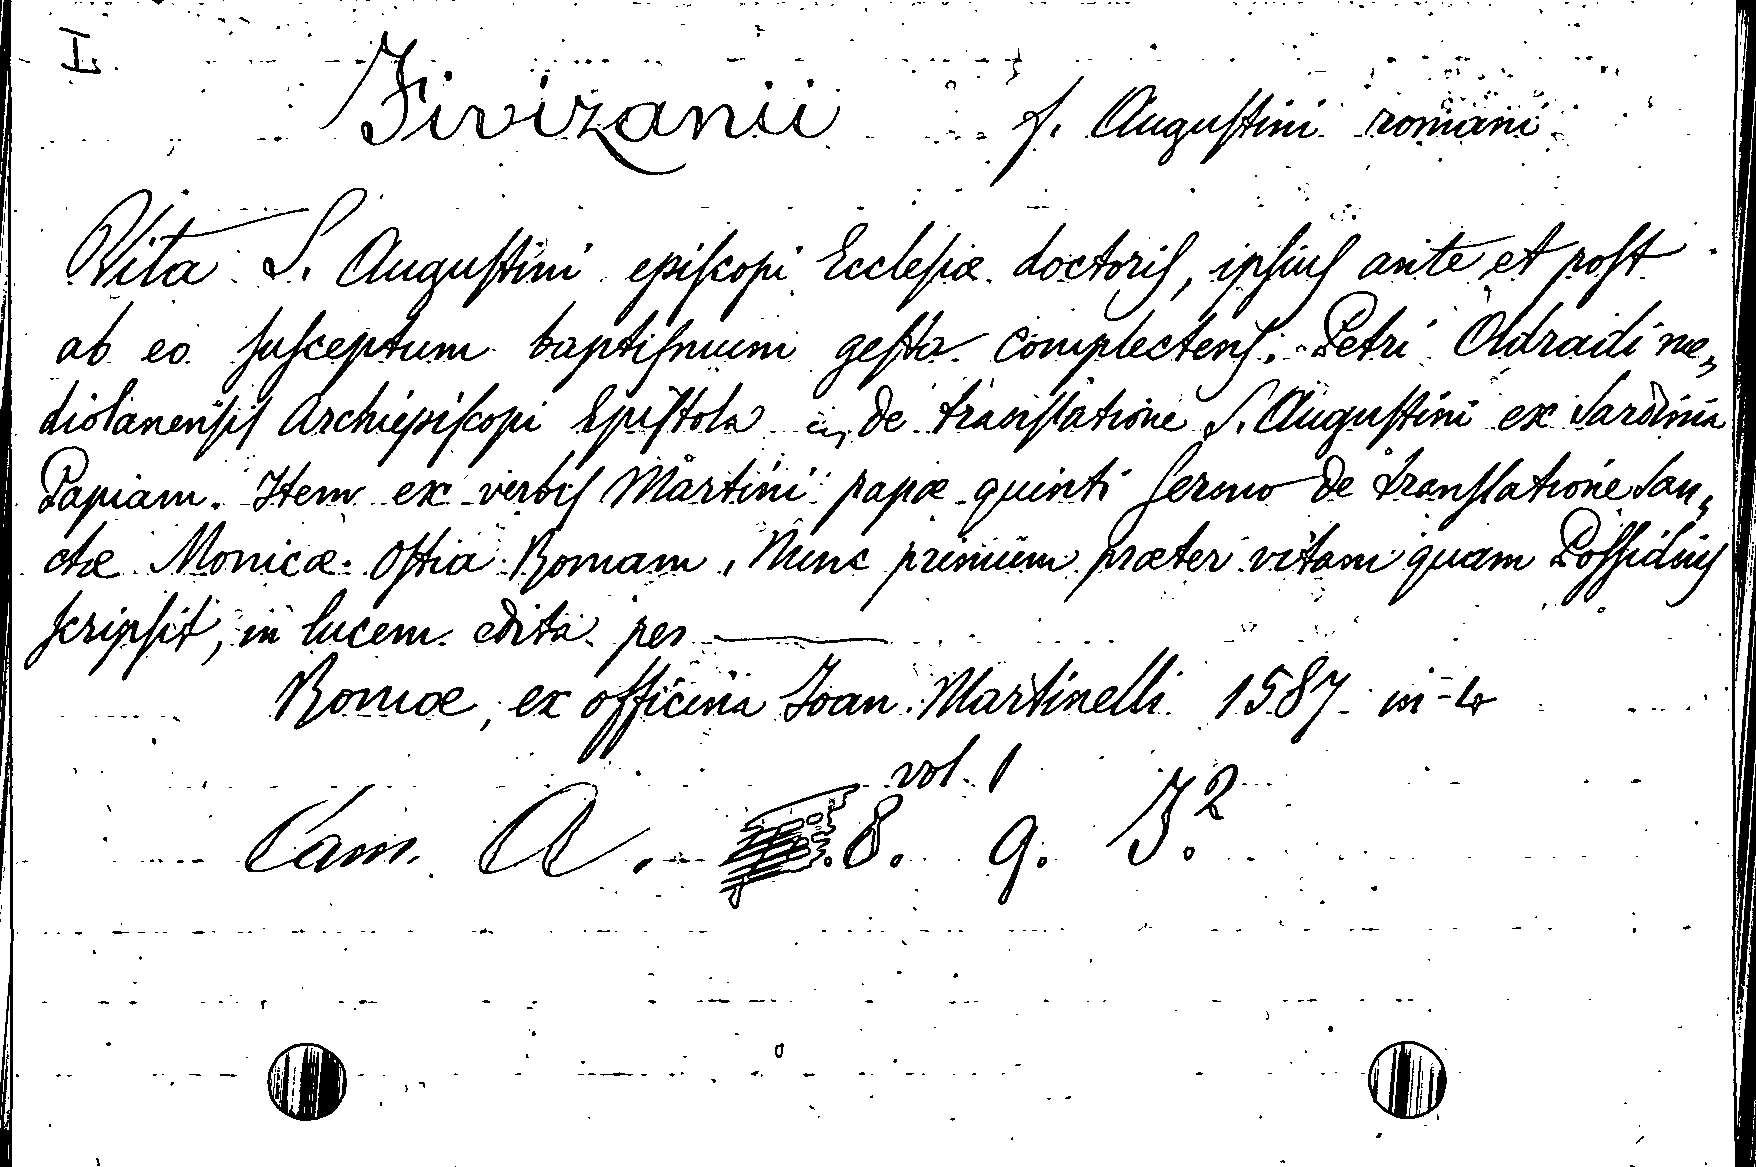 I
Fivizanii f. Augustini romani
Vita S. Augustini episcopi Ecclesiæ doctoris, ipsius ante et post
ab eo susceptum baptismum gesta complectens. Petri Oldradi me,
diolanensis Archiepiscopi Epistola de translatione S. Augustini ex Sardinia
Papiam. Item ex verbis Martini papæ quinti sermo de translatione San,
ctæ Monicæ. Ostia Romam. Nunc primum præter vitam quam Possidius
scripsit, in lucem edita per ———
Romæ, ex officina Joan. Martinelli 1587 in-4
vol. 1
Cam. A. 8. 9. F.²